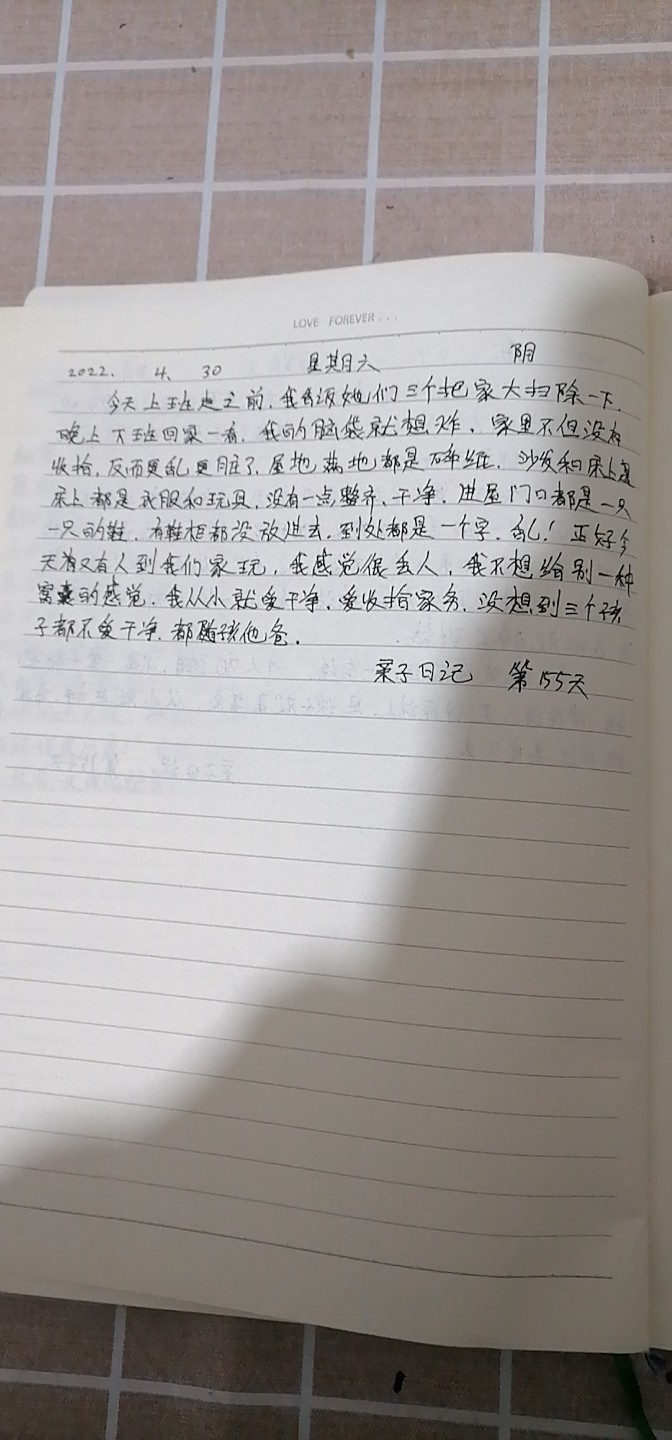 LOVE FOREVER...
2022. 4. 30 星期六 阴
今天上班走之前,我告诉她们三个把家大扫除一下.
晚上下班回家一看,我的脑袋就想炸,家里不但没有
收拾,反而更乱更脏了,屋地满地都是碎纸,沙发和床上
床上都是衣服和玩具,没有一点整齐、干净,进屋门口都是一只
一只的鞋,有鞋柜都没放进去,到处都是一个字,乱!正好今
天有人到我们家玩,我感觉很丢人,我不想给别一种
窝囊的感觉.我从小就爱干净,爱收拾家务,没想到三个孩
子都不爱干净,都随孩他爸.
栗子日记 第155天